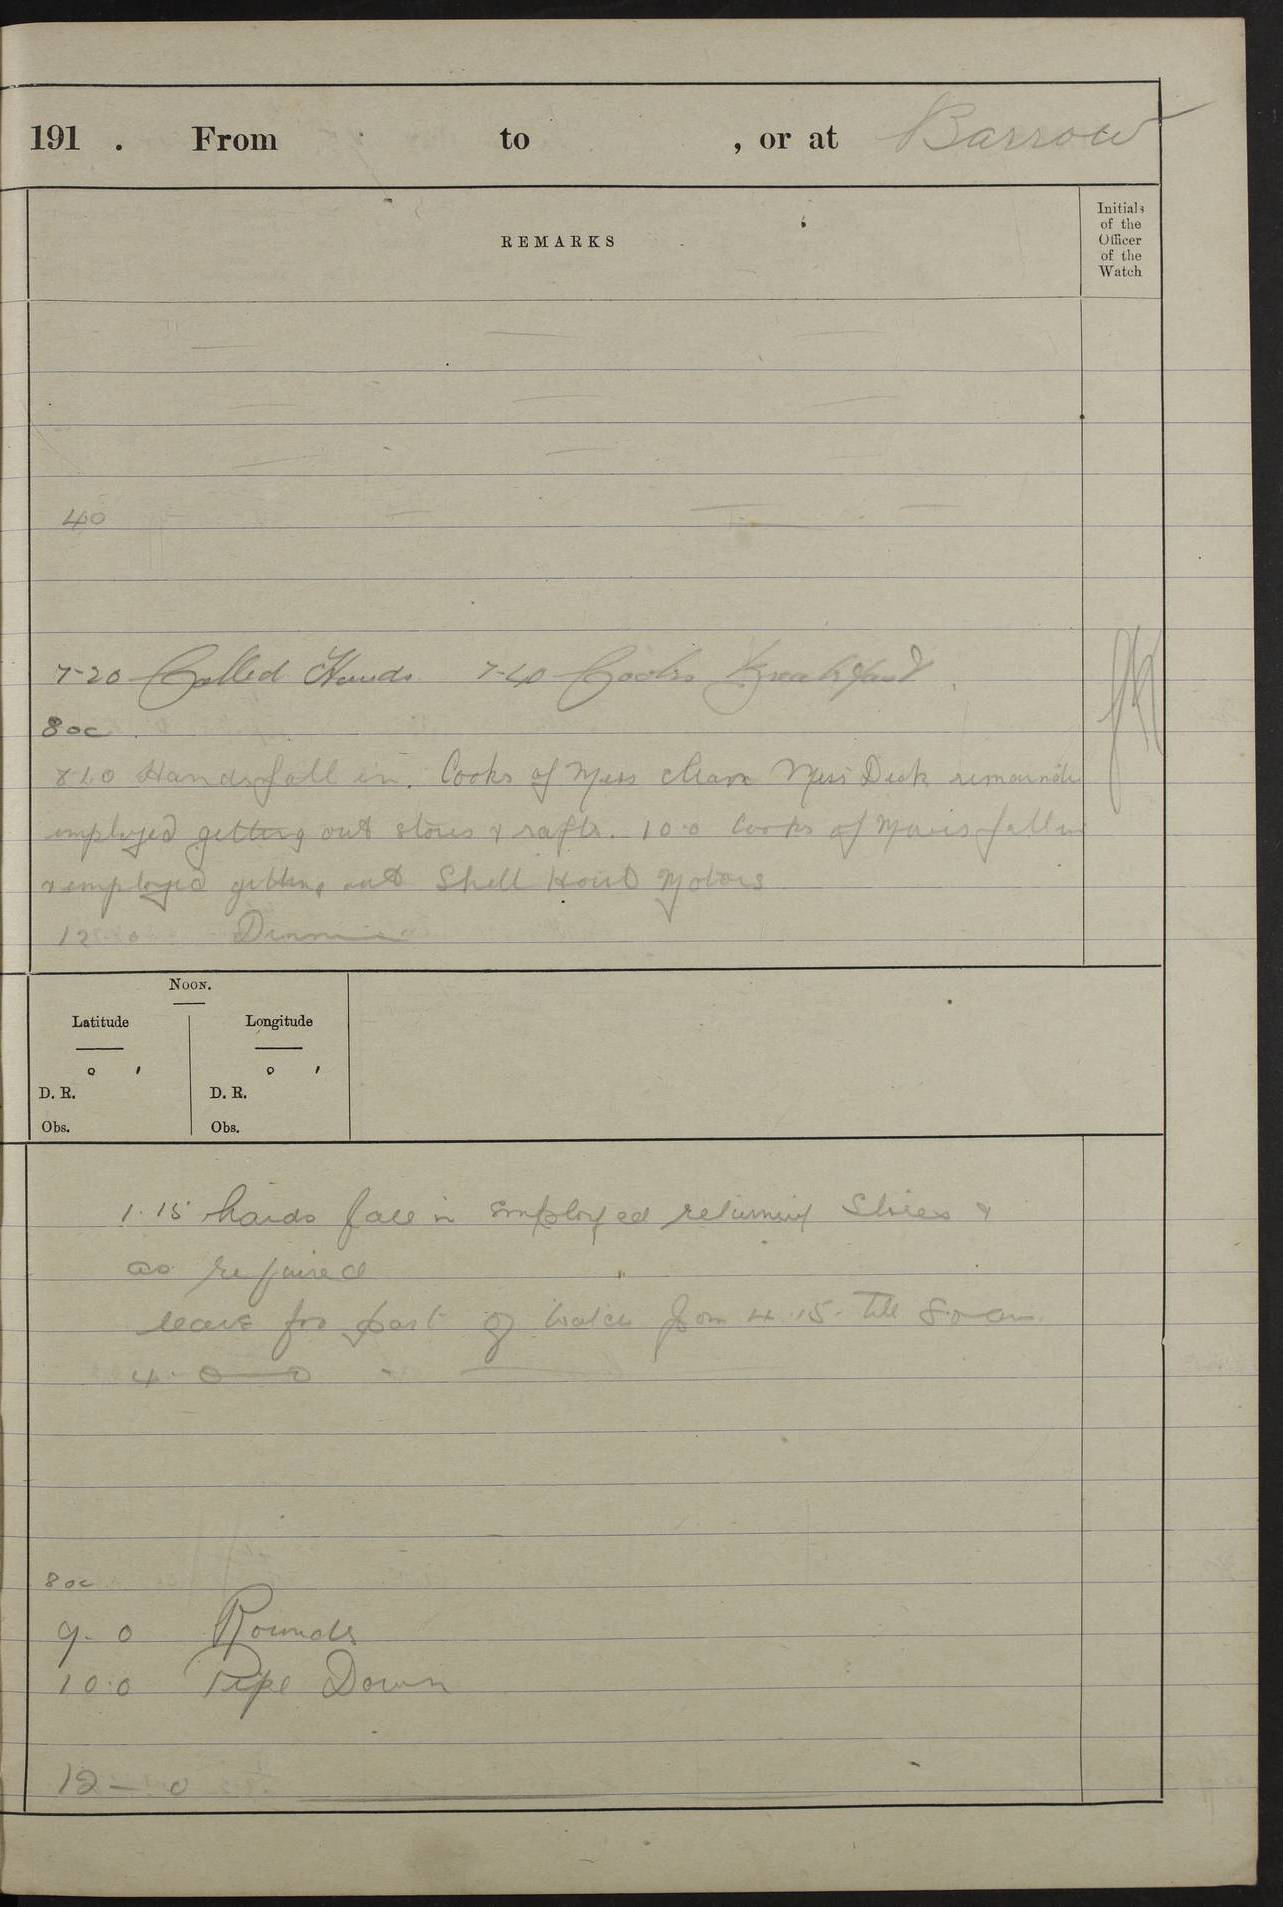 191 . From to , or at Barrow
REMARKS
Initials
of the
Officer
of the
Watch
40
7-20 Called Hands 7-40 Cooks Breakfast
8 oc
Hands fall in. Cooks of Mess clean Mess Deck remainder
employed getting out stores & rafts. 10.0 Cooks of Messes fall in
& employed getting out Shell Hoist Motors
12 0 Dinner
NOON.
Latitude Longitude
° ′ ° ′
D. R. D. R.
Obs. Obs.
1.15 hands fall in employed returning Stores &
as required
leave for part of watch from 4.15. till
4. 0
8 oc
9. 0 Rounds
10.0 Pipe Down
12 — 0